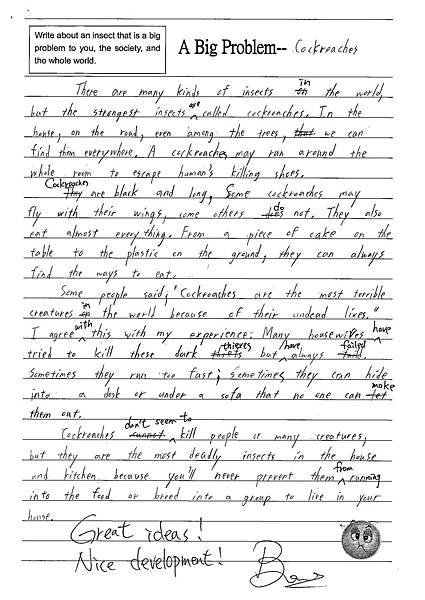 Write about an insect that is a big
problem to you, the society, and
the whole world.
A Big Problem-- Cockroaches
There are many kinds of insects in the world,
but the strongest insects are called cockroaches. In the
house, on the road, even among the trees, that we can
find them everywhere. A cockroaches may run around the
whole room to escape human's killing shoes.
Cockroaches
They are black and long, Some cockroaches may
fly with their wings, some others do not. They also
eat almost everything. From a piece of cake on the
table to the plastic on the ground, they can always
find the ways to eat.
Some people said, "Cockroaches are the most terrible
creatures in the world because of their undead lives."
I agree with this with my experience: Many housewives have
tried to kill these dark thieves but have always failed.
Sometimes they run too fast; sometimes they can hide
into a desk or under a sofa that no one can let make
them out.
Cockroaches cannot don't seem to kill people or many creatures,
but they are the most deadly insects in the house
and kitchen because you'll never prevent them from running
into the food or breed into a group to live in your
house.
Great ideas!
Nice development!